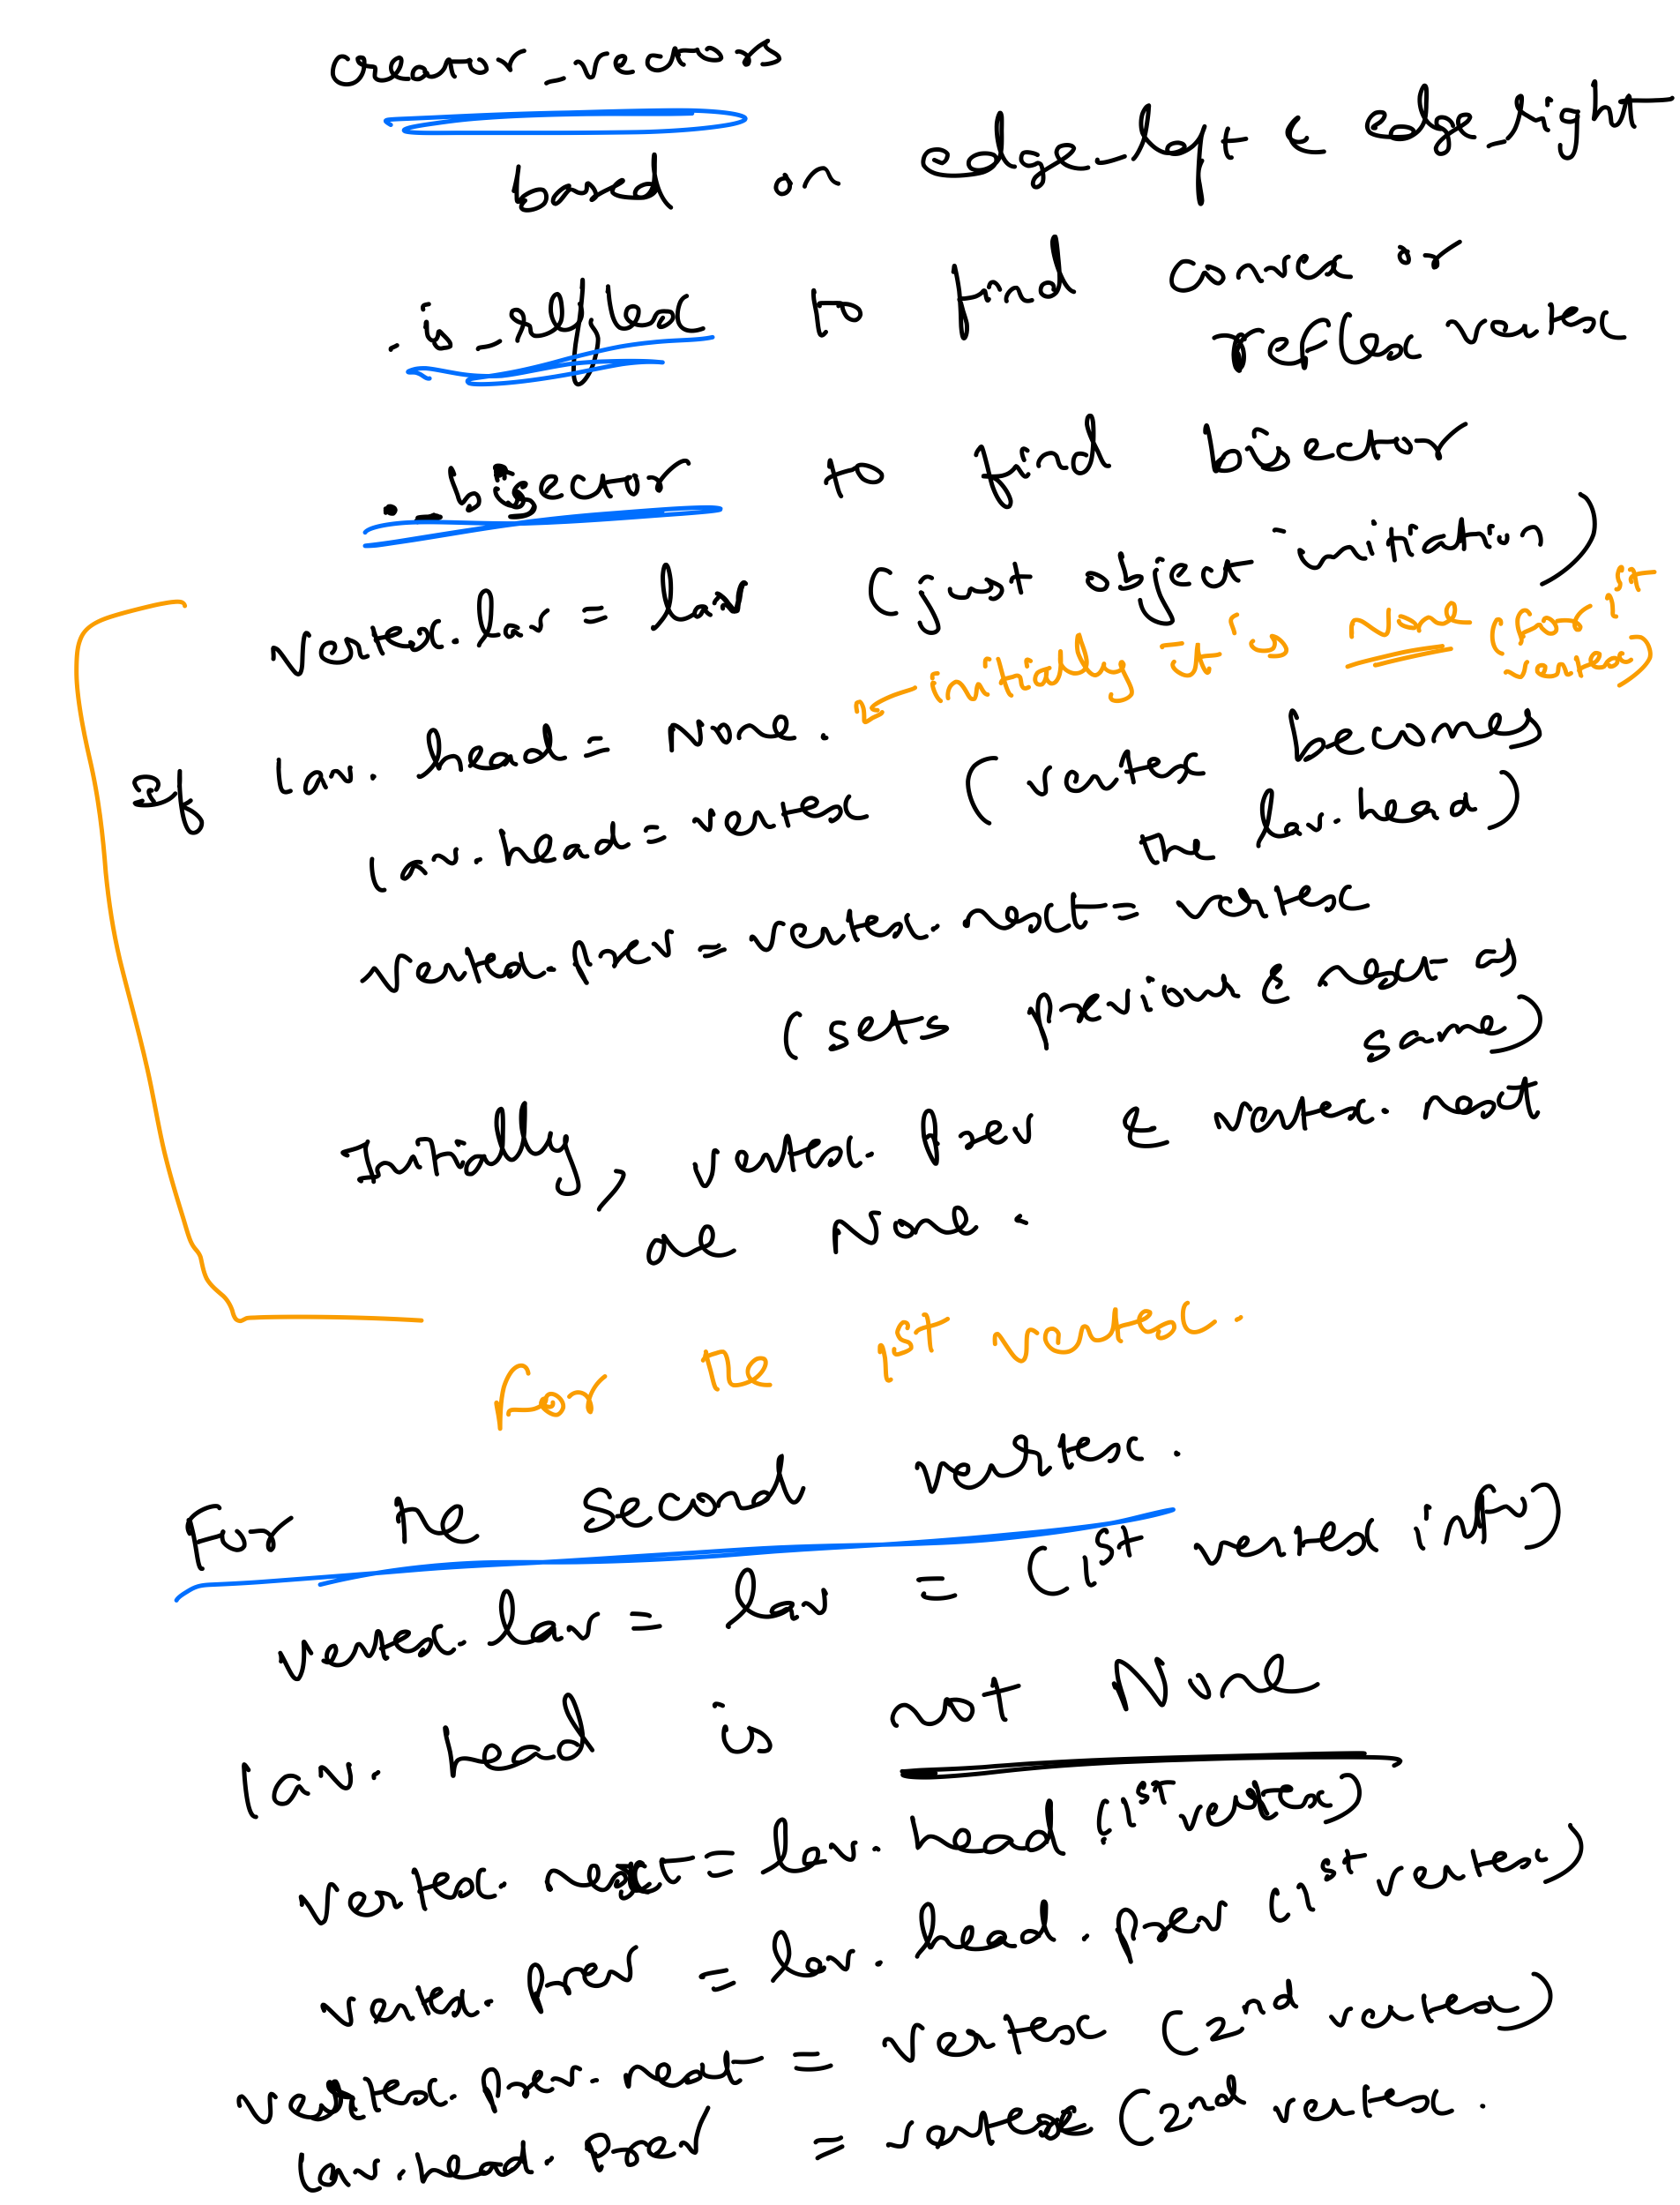 creator_vectors
based on edge_left & edge_right
._is_reflex to find convex or
reflex vertex
._bisector to find bisector
vertex.lav = lav (just object initiation)
← initially it is None (for 1st
vertex)
If lav.head = None.
lav.head = vertex (vertex becomes
the lav.head)
vertex.prev = vertex.next = vertex
(sets previous & next as
same)
Initially, vertex.prev & vertex.next
are None.
For the 1st vertex.
For the second vertex.
vertex.lav = lav = (1st vertex info)
lav.head is not None
vertex.next = lav.head (1st vertex)
vertex.prev = lav.head.prev (1st vertex)
vertex.prev.next = vertex (2nd vertex)
lav.head.prev = vertex (2nd vertex.